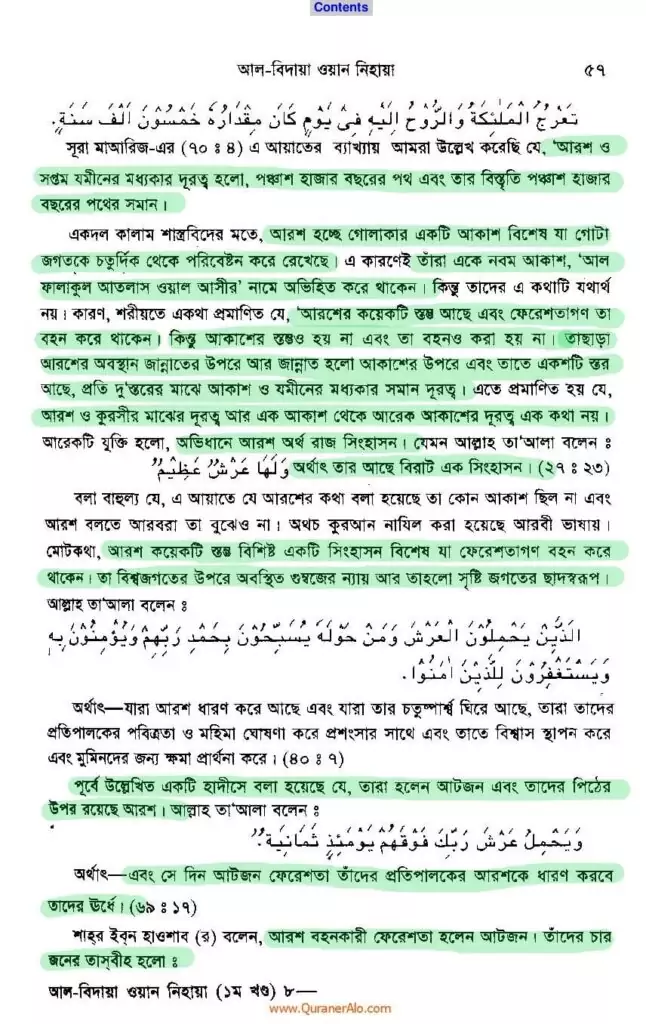 Contents
আল-বিদায়া ওয়ান নিহায়া ৫৭
تَعْرُجُ الْمَلٰئِكَةُ وَالرُّوْحُ اِلَيْهِ فِىْ يَوْمٍ كَانَ مِقْدَارُهٗ خَمْسُوْنَ اَلْفَ سَنَةٍ.
সূরা মাআরিজ-এর (৭০ ঃ ৪) এ আয়াতের ব্যাখ্যায় আমরা উল্লেখ করেছি যে, ‘আরশ ও
সপ্তম যমীনের মধ্যকার দূরত্ব হলো, পঞ্চাশ হাজার বছরের পথ এবং তার বিস্তৃতি পঞ্চাশ হাজার
বছরের পথের সমান।
একদল কালাম শাস্ত্রবিদের মতে, আরশ হচ্ছে গোলাকার একটি আকাশ বিশেষ যা গোটা
জগতকে চতুর্দিক থেকে পরিবেষ্টন করে রেখেছে। এ কারণেই তাঁরা একে নবম আকাশ, ‘আল
ফালাকুল আতলাস ওয়াল আসীর’ নামে অভিহিত করে থাকেন। কিন্তু তাদের এ কথাটি যথার্থ
নয়। কারণ, শরীয়তে একথা প্রমাণিত যে, ‘আরশের কয়েকটি স্তম্ভ আছে এবং ফেরেশতাগণ তা
বহন করে থাকেন। কিন্তু আকাশের স্তম্ভও হয় না এবং তা বহনও করা হয় না। তাছাড়া
আরশের অবস্থান জান্নাতের উপরে আর জান্নাত হলো আকাশের উপরে এবং তাতে একশটি স্তর
আছে, প্রতি দু’স্তরের মাঝে আকাশ ও যমীনের মধ্যকার সমান দূরত্ব। এতে প্রমাণিত হয় যে,
আরশ ও কুরসীর মাঝের দূরত্ব আর এক আকাশ থেকে আরেক আকাশের দূরত্ব এক কথা নয়।
আরেকটি যুক্তি হলো, অভিধানে আরশ অর্থ রাজ সিংহাসন। যেমন আল্লাহ তা‘আলা বলেন ঃ
وَلَهَا عَرْشٌ عَظِيْمٌ অর্থাৎ তার আছে বিরাট এক সিংহাসন। (২৭ ঃ ২৩)
বলা বাহুল্য যে, এ আয়াতে যে আরশের কথা বলা হয়েছে তা কোন আকাশ ছিল না এবং
আরশ বলতে আরবরা তা বুঝেও না। অথচ কুরআন নাযিল করা হয়েছে আরবী ভাষায়।
মোটকথা, আরশ কয়েকটি স্তম্ভ বিশিষ্ট একটি সিংহাসন বিশেষ যা ফেরেশতাগণ বহন করে
থাকেন। তা বিশ্বজগতের উপরে অবস্থিত গুম্বজের ন্যায় আর তাহলো সৃষ্টি জগতের ছাদস্বরূপ।
আল্লাহ তা‘আলা বলেন ঃ
اَلَّذِيْنَ يَحْمِلُوْنَ الْعَرْشَ وَمَنْ حَوْلَهٗ يُسَبِّحُوْنَ بِحَمْدِ رَبِّهِمْ وَيُؤْمِنُوْنَ بِهٖ
وَيَسْتَغْفِرُوْنَ لِلَّذِيْنَ اٰمَنُوْا.
অর্থাৎ—যারা আরশ ধারণ করে আছে এবং যারা তার চতুষ্পার্শ্ব ঘিরে আছে, তারা তাদের
প্রতিপালকের পবিত্রতা ও মহিমা ঘোষণা করে প্রশংসার সাথে এবং তাতে বিশ্বাস স্থাপন করে
এবং মুমিনদের জন্য ক্ষমা প্রার্থনা করে। (৪০ ঃ ৭)
পূর্বে উল্লেখিত একটি হাদীসে বলা হয়েছে যে, তারা হলেন আটজন এবং তাদের পিঠের
উপর রয়েছে আরশ। আল্লাহ তা‘আলা বলেন ঃ
وَيَحْمِلُ عَرْشَ رَبِّكَ فَوْقَهُمْ يَوْمَئِذٍ ثَمَانِيَةٌ.
অর্থাৎ—এবং সে দিন আটজন ফেরেশতা তাঁদের প্রতিপালকের আরশকে ধারণ করবে
তাদের ঊর্ধে। (৬৯ ঃ ১৭)
শাহ্‌র ইব্‌ন হাওশাব (র) বলেন, আরশ বহনকারী ফেরেশতা হলেন আটজন। তাঁদের চার
জনের তাস্‌বীহ হলো ঃ
আল-বিদায়া ওয়ান নিহায়া (১ম খণ্ড) ৮—
www.QuranerAlo.com